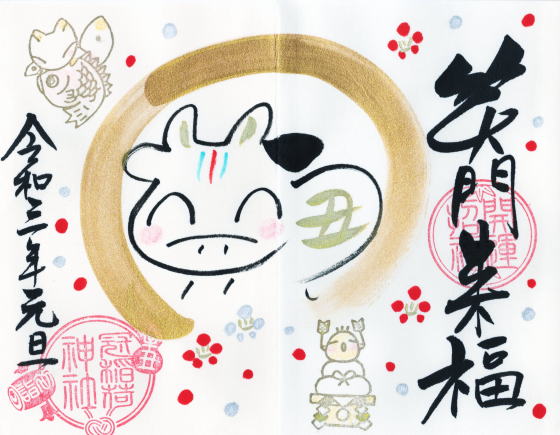 笑門来福
開運
丑
令和三年元旦
冠稲荷
神社